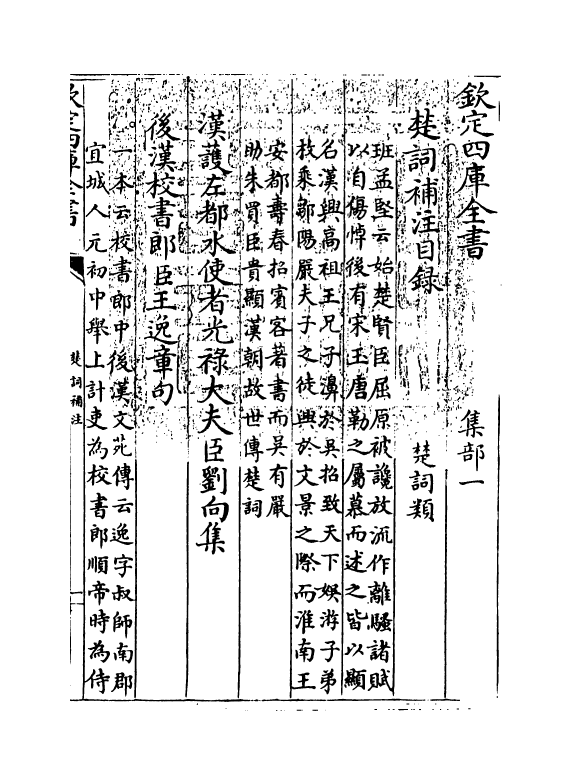 欽定四庫全書
集部一
楚詞補注目録
楚詞類
班孟堅云始楚賢臣屈原被讒放流作離騷諸賦
以自傷悼後有宋玉唐勒之屬慕而述之皆以顯
名漢興高祖王兄子濞於吳招致天下娯游子弟
枚乘鄒陽嚴夫子之徒興於文景之際而淮南王
安都壽春招賓客著書而吳有嚴
助朱買臣貴顯漢朝故世傳楚詞
漢護左都水使者光祿大夫臣劉向集
後漢校書郎臣王逸章句
一本云校書郎中後漢文苑傳云逸字叔師南郡
宜城人元初中舉上計吏為校書郎順帝時為侍
欽定四庫全書
楚詞補注
一